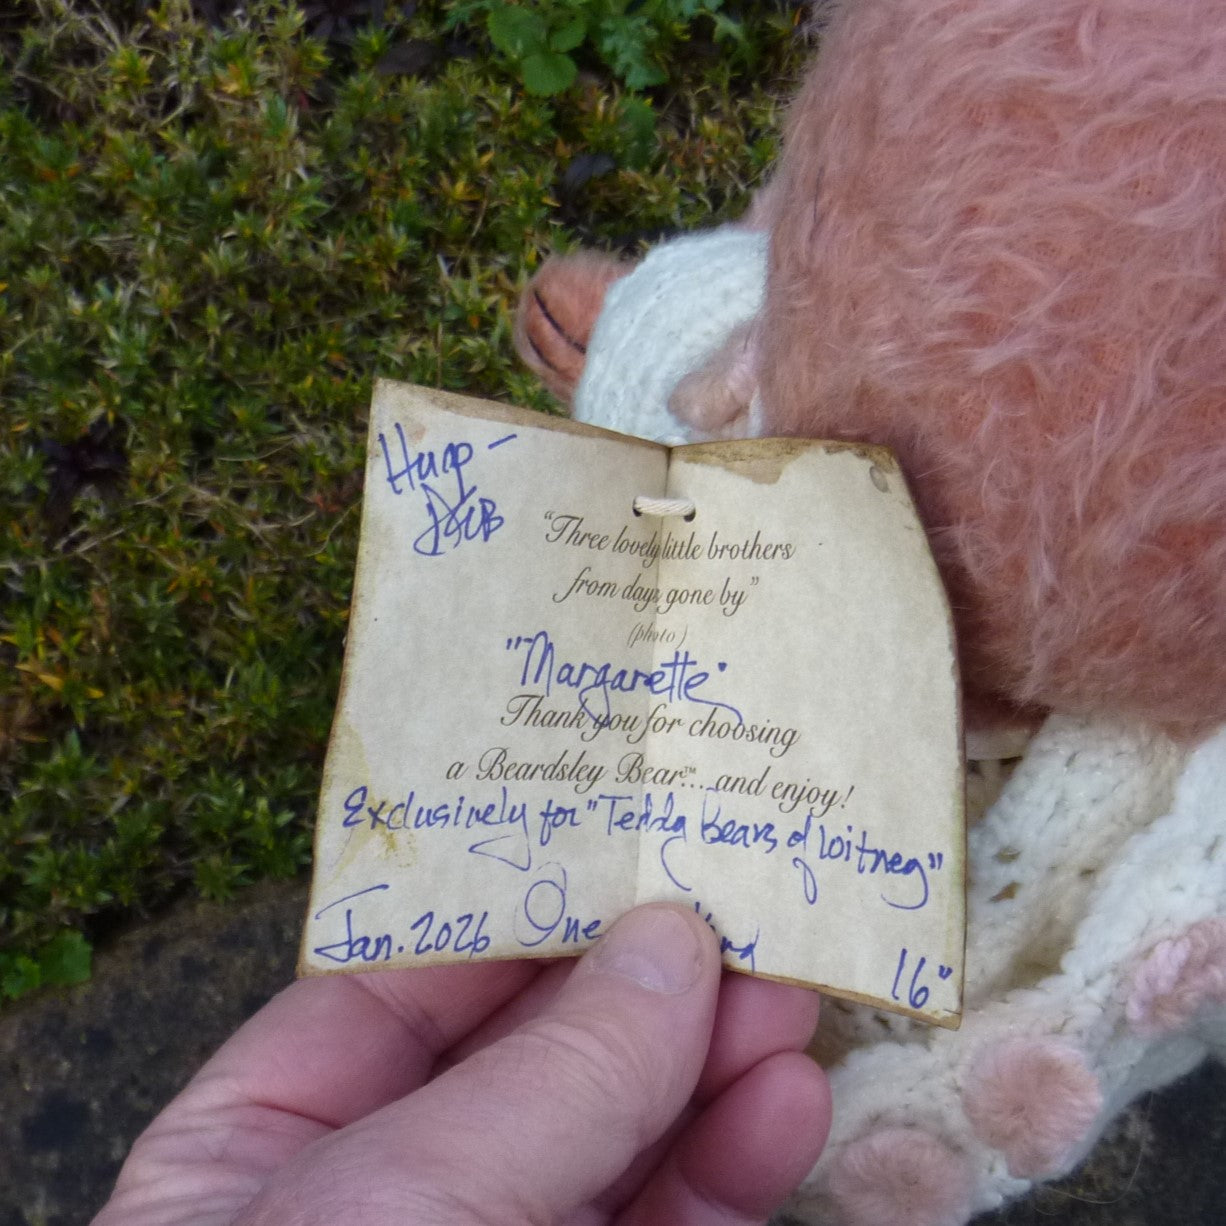 "Three lovely little brothers
from days gone by"
(photo)
"Margarette"
Thank you for choosing
a Beardsley Bear™... and enjoy!
Exclusively for "Teddy Bears of Witney"
Jan. 2026 One
16"